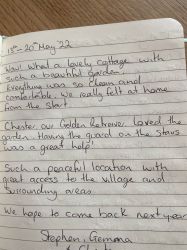 13th - 20th May '22
Wow! What a lovely cottage with
such a beautiful garden.
Everything was so clean and
comfortable. We really felt at home
from the start
Chester our Golden Retriever loved the
garden. Having the guard on the stairs
was a great help!
Such a peaceful location with
great access to the village and
surrounding areas.
We hope to come back next year
Stephen, Gemma